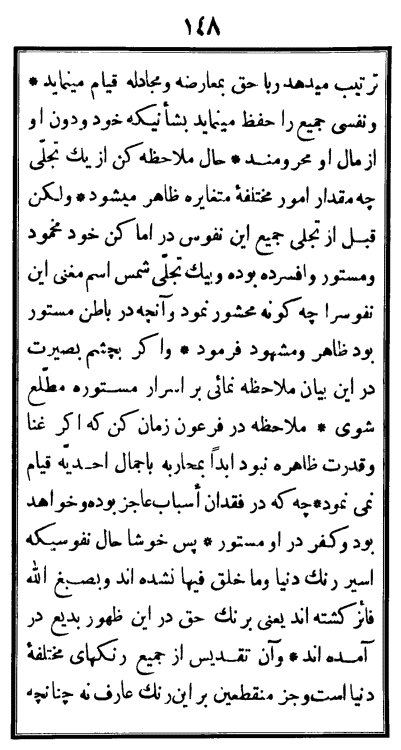 ١٤٨
ترتیب میدهد و با حق بمعارضه و مجادله قیام مینماید *
و نفسی جمیع را حفظ مینماید بشأنیکه خود و دون او
از مال او محرومند * حال ملاحظه کن از یك تجلّی
چه مقدار امور مختلفهٔ متغایره ظاهر میشود * ولکن
قبل از تجلی جمیع این نفوس در اماکن خود مخمود
و مستور و افسرده بوده و بیك تجلّی شمس اسم مغنی این
نفوسرا چه کونه محشور نمود و آنچه در باطن مستور
بود ظاهر و مشهود فرمود * واکر بچشم بصیرت
در این بیان ملاحظه نمائی بر اسرار مستوره مطّلع
شوی * ملاحظه در فرعون زمان کن که اکر غنا
و قدرت ظاهره نبود ابداً بمحاربه باجمال احدیّه قیام
نمی نمود * چه که در فقدان أسباب عاجز بوده و خواهد
بود و کفر در او مستور * پس خوشا حال نفوسیکه
اسیر رنك دنیا و ما خلق فیها نشده اند و بصبغ الله
فائز کشته اند یعنی برنك حق در این ظهور بدیع در
آمده اند * و آن تقدیس از جمیع رنکهای مختلفهٔ
دنیا است و جز منقطعین بر این رنك عارف نه چنانچه